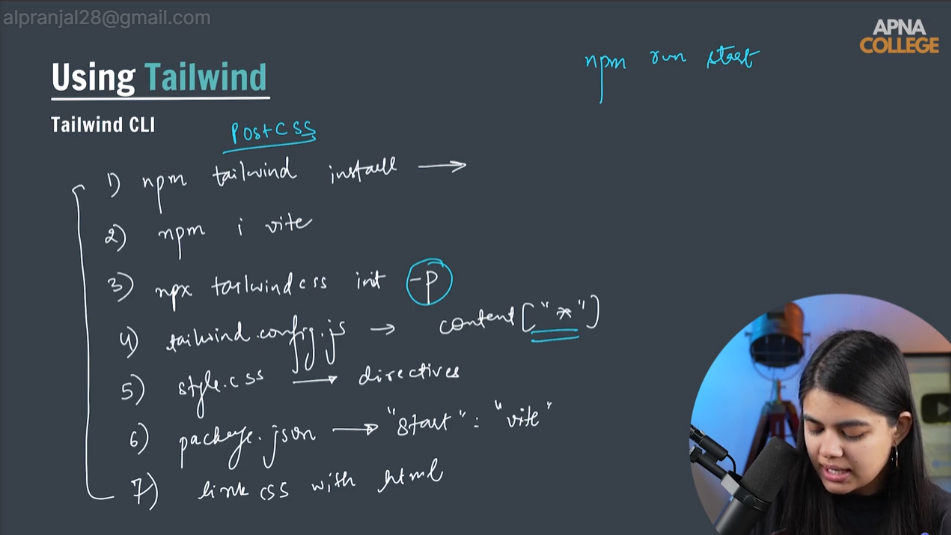 alpranjal28@gmail.com
APNA
COLLEGE
npm run start
Using Tailwind
Tailwind CLI
PostCSS
1) npm tailwind install →
2) npm i vite
3) npx tailwindcss init -p
4) tailwind.config.js → content["*"]
5) style.css → directives
6) package.json → "start" : "vite"
7) link css with html